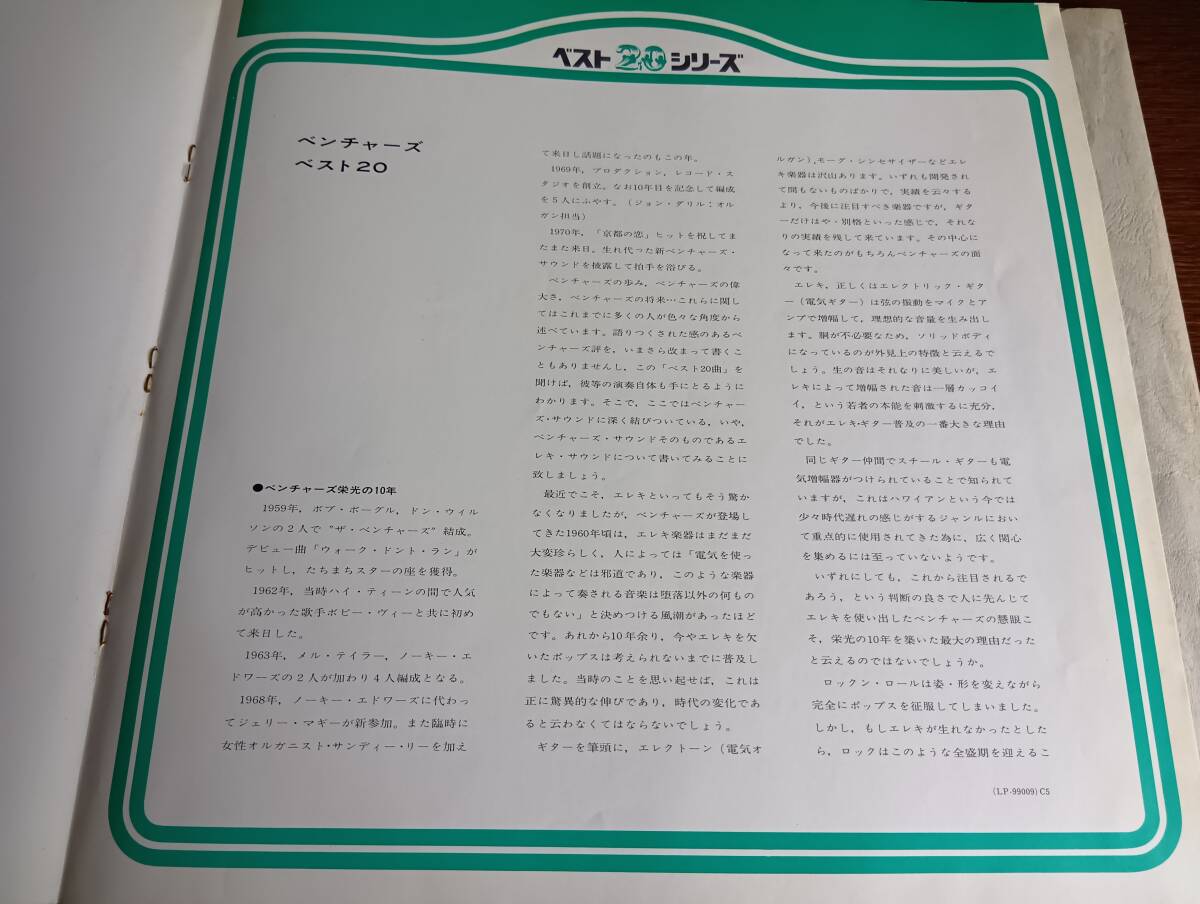 ベスト20シリーズ
ベンチャーズ
ベスト20
●ベンチャーズ栄光の10年
1959年，ボブ・ボーグル，ドン・ウィル
ソンの2人で“ザ・ベンチャーズ”結成。
デビュー曲「ウォーク・ドント・ラン」が
ヒットし，たちまちスターの座を獲得。
1962年，当時ハイ・ティーンの間で人気
が高かった歌手ボビー・ヴィーと共に初め
て来日した。
1963年，メル・テイラー，ノーキー・エ
ドワーズの2人が加わり4人編成となる。
1968年，ノーキー・エドワーズに代わっ
てジェリー・マギーが新参加。また臨時に
女性オルガニスト・サンディー・リーを加え
て来日し話題になったのもこの年。
1969年，プロダクション，レコード・ス
タジオを創立。なお10年目を記念して編成
を5人にふやす。（ジョン・ダリル：オル
ガン担当）
1970年，「京都の恋」ヒットを祝してま
たまた来日。生れ代った新ベンチャーズ・
サウンドを披露して拍手を浴びる。
ベンチャーズの歩み，ベンチャーズの偉
大さ，ベンチャーズの将来…これらに関し
てはこれまでに多くの人が色々な角度から
述べています。語りつくされた感のあるベ
ンチャーズ評を，いまさら改まって書くこ
ともありませんし，この「ベスト20曲」を
聞けば，彼等の演奏自体も手にとるように
わかります。そこで，ここではベンチャー
ズ・サウンドに深く結びついている，いや，
ベンチャーズ・サウンドそのものであるエ
レキ・サウンドについて書いてみることに
致しましょう。
最近でこそ，エレキといってもそう驚か
なくなりましたが，ベンチャーズが登場し
てきた1960年頃は，エレキ楽器はまだまだ
大変珍らしく，人によっては「電気を使っ
た楽器などは邪道であり，このような楽器
によって奏される音楽は堕落以外の何もの
でもない」と決めつける風潮があったほど
です。あれから10年余り，今やエレキを欠
いたポップスは考えられないまでに普及し
ました。当時のことを思い起せば，これは
正に驚異的な伸びであり，時代の変化であ
ると云わなくてはならないでしょう。
ギターを筆頭に，エレクトーン（電気オ
ルガン），モーグ・シンセサイザーなどエレ
キ楽器は沢山あります。いずれも開発され
て間もないものばかりで，実績を云々する
より，今後に注目すべき楽器ですが，ギタ
ーだけはや・別格といった感じで，それな
りの実績を残して来ています。その中心に
なって来たのがもちろんベンチャーズの面
々です。
エレキ，正しくはエレクトリック・ギタ
ー（電気ギター）は弦の振動をマイクとア
ンプで増幅して，理想的な音量を生み出し
ます。胴が不必要なため，ソリッドボディ
になっているのが外見上の特徴と云えるで
しょう。生の音はそれなりに美しいが，エ
レキによって増幅された音は一層カッコイ
イ，という若者の本能を刺激するに充分，
それがエレキ・ギター普及の一番大きな理由
でした。
同じギター仲間でスチール・ギターも電
気増幅器がつけられていることで知られて
いますが，これはハワイアンという今では
少々時代遅れの感じがするジャンルにおい
て重点的に使用されてきた為に，広く関心
を集めるには至っていないようです。
いずれにしても，これから注目されるで
あろう，という判断の良さで人に先んじて
エレキを使い出したベンチャーズの慧眼こ
そ，栄光の10年を築いた最大の理由だった
と云えるのではないでしょうか。
ロックン・ロールは姿・形を変えながら
完全にポップスを征服してしまいました。
しかし，もしエレキが生れなかったとした
ら，ロックはこのような全盛期を迎えるこ
(LP-99009) C5